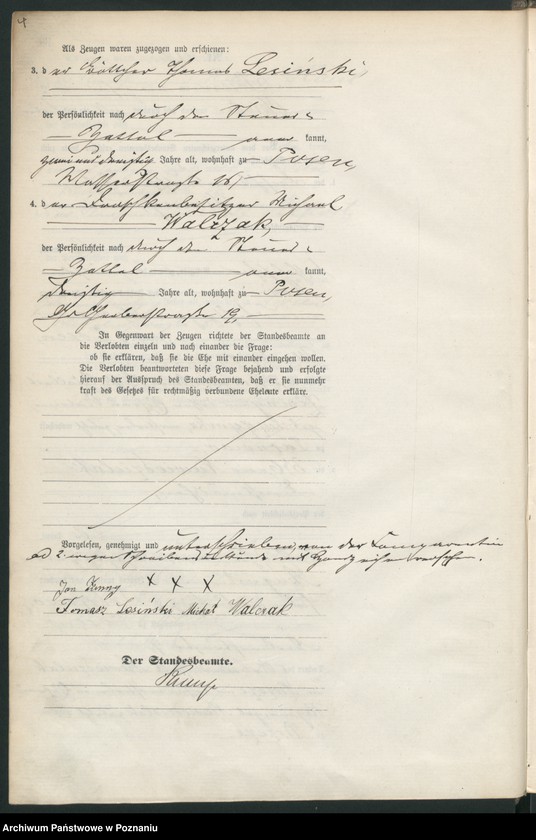 4
Als Zeugen waren zugezogen und erschienen:
3. der Böttcher Thomas Lesiński,
der Persönlichkeit nach durch den Steuer-
Zettel anerkannt,
zweiunddreißig Jahre alt, wohnhaft zu Posen,
Wasserstraße 16,
4. der Droschkenbesitzer Michael
Walczak,
der Persönlichkeit nach durch den Steuer-
Zettel kannt,
dreißig Jahre alt, wohnhaft zu Posen,
Gr. Gerberstraße 19,
In Gegenwart der Zeugen richtete der Standesbeamte an
die Verlobten einzeln und nach einander die Frage:
ob sie erklären, daß sie die Ehe mit einander eingehen wollen.
Die Verlobten beantworteten diese Frage bejahend und erfolgte
hierauf der Ausspruch des Standesbeamten, daß er sie nunmehr
kraft des Gesetzes für rechtmäßig verbundene Eheleute erkläre.
Vorgelesen, genehmigt und unterschrieben, von der Comparentin
ad 2 wegen Schreibensunkunde mit Handzeichen versehen.
Jan × × ×
Tomasz Lesiński Michał Walczak
Der Standesbeamte.
Archiwum Państwowe w Poznaniu